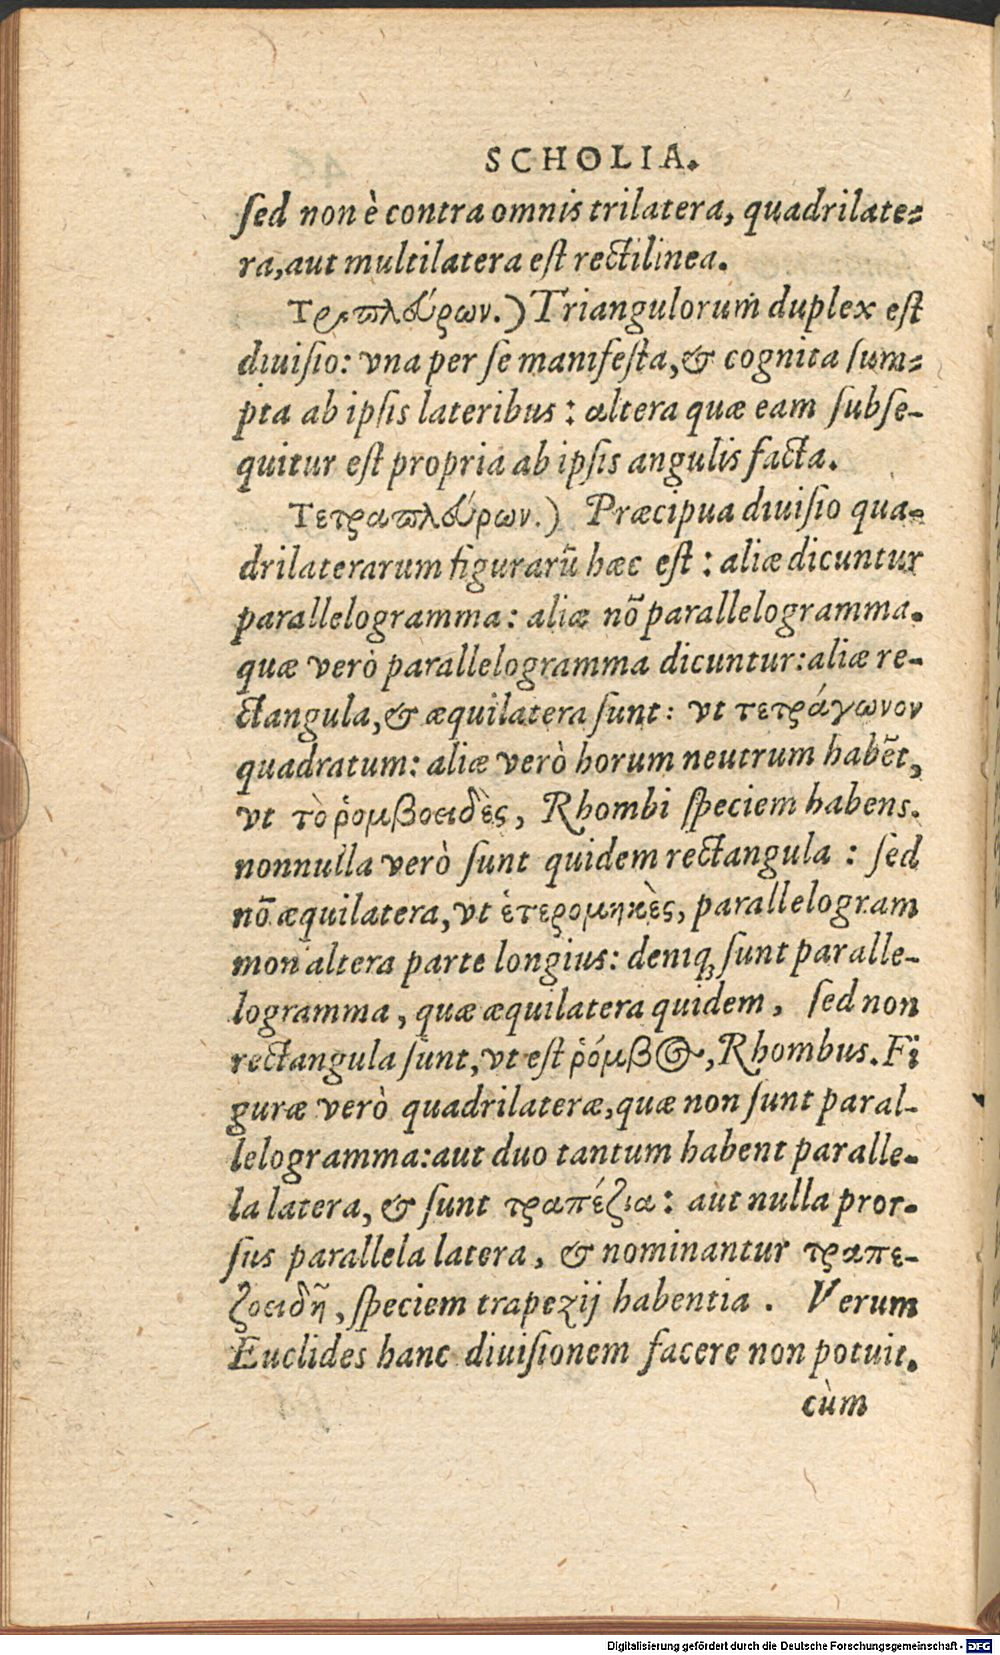 SCHOLIA.
sed non è contra omnis trilatera, quadrilate-
ra, aut multilatera est rectilinea.
Τριπλούρων.) Triangulorum duplex est
diuisio: vna per se manifesta, & cognita sum-
pta ab ipsis lateribus: altera quæ eam subse-
quitur est propria ab ipsis angulis facta.
Τετραπλούρων.) Præcipua diuisio qua-
drilaterarum figurarũ hæc est: aliæ dicuntur
parallelogramma: aliæ nõ parallelogramma.
quæ verò parallelogramma dicuntur: aliæ re-
ctangula, & æquilatera sunt: vt τετράγωνον
quadratum: aliæ verò horum neutrum habẽt,
vt τὸ ῥομβοειδὲς, Rhombi speciem habens.
nonnulla verò sunt quidem rectangula: sed
nõ æquilatera, vt ἑτερομηκὲς, parallelogram
mon altera parte longius: deniqꝫ sunt paralle-
logramma, quæ æquilatera quidem, sed non
rectangula sunt, vt est ῥόμβος, Rhombus. Fi
guræ verò quadrilateræ, quæ non sunt paral-
lelogramma: aut duo tantum habent paralle-
la latera, & sunt τραπέζια: aut nulla pror-
sus parallela latera, & nominantur τραπε-
ζοειδῆ, speciem trapezij habentia. Verum
Euclides hanc diuisionem facere non potuit.
cùm
Digitalisierung gefördert durch die Deutsche Forschungsgemeinschaft - DFG